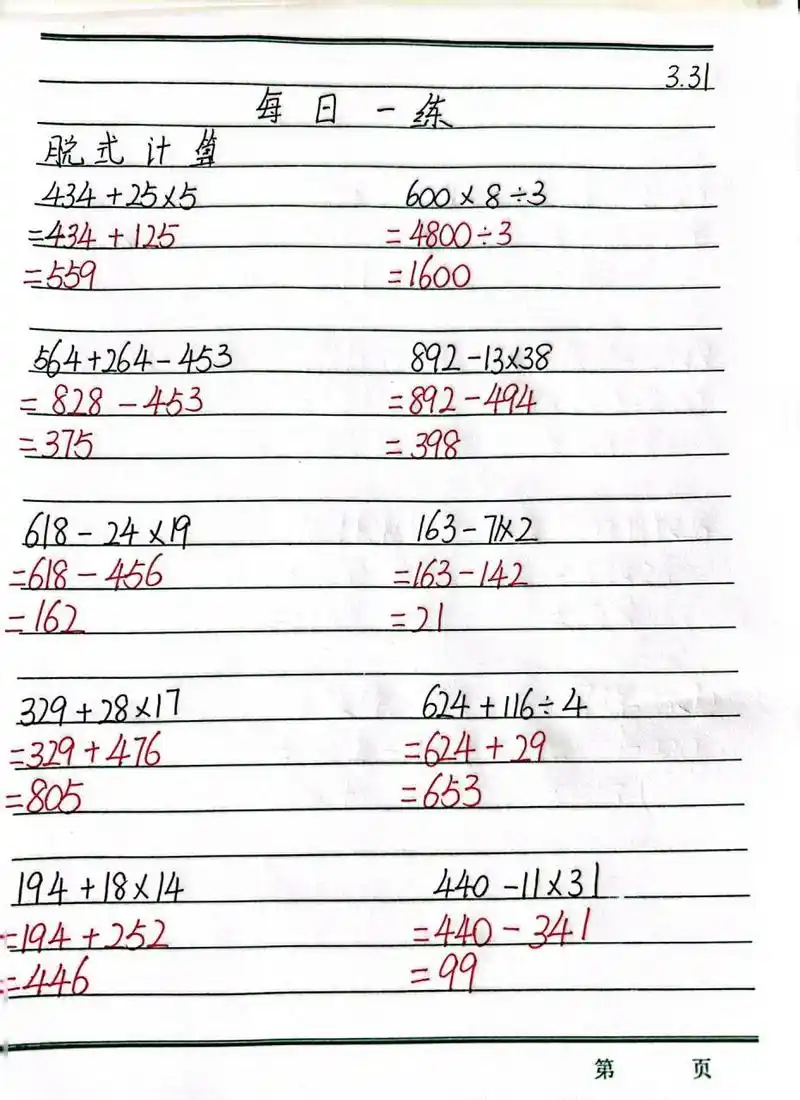 3.31
每日一练
脱式计算
434+25×5 600×8÷3
=434+125 =4800÷3
=559 =1600
564+264-453 892-13×38
=828-453 =892-494
=375 =398
618-24×19 163-71×2
=618-456 =163-142
=162 =21
329+28×17 624+116÷4
=329+476 =624+29
=805 =653
194+18×14 440-11×31
=194+252 =440-341
=446 =99
第 页